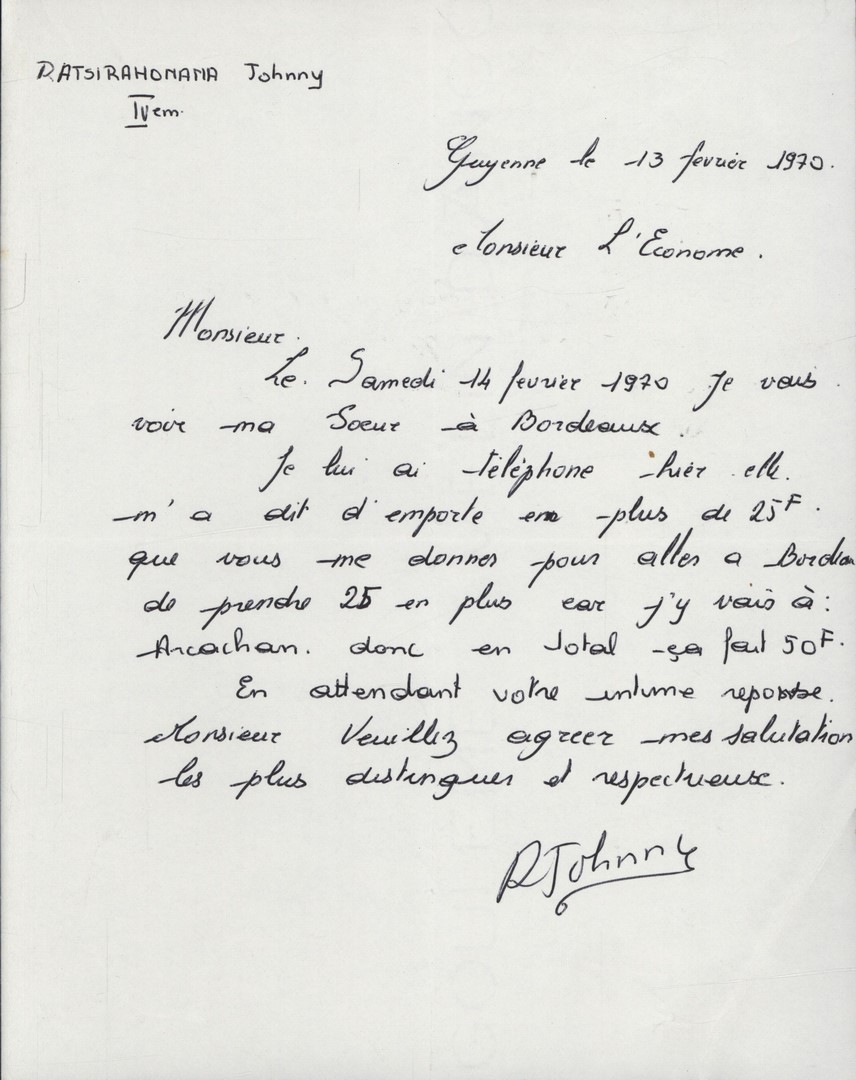 RATSIRAHONANA Johnny
IVem.
Guyenne le 13 fevrier 1970.
Monsieur L'Econome.
Monsieur.
Le. Samedi 14 fevrier 1970 Je vais
voir ma Soeur à Bordeaux.
Je lui ai téléphone hier elle.
m'a dit d'emporte en plus de 25F.
que vous me donner pour aller a Bordeau
de prendre 25 en plus car j'y vais à:
Arcachan. donc en total ça fait 50F.
En attendant votre intime reponse.
Monsieur Veuillez agreer mes salutation
les plus distinguer et respectueuse.
R Johnny